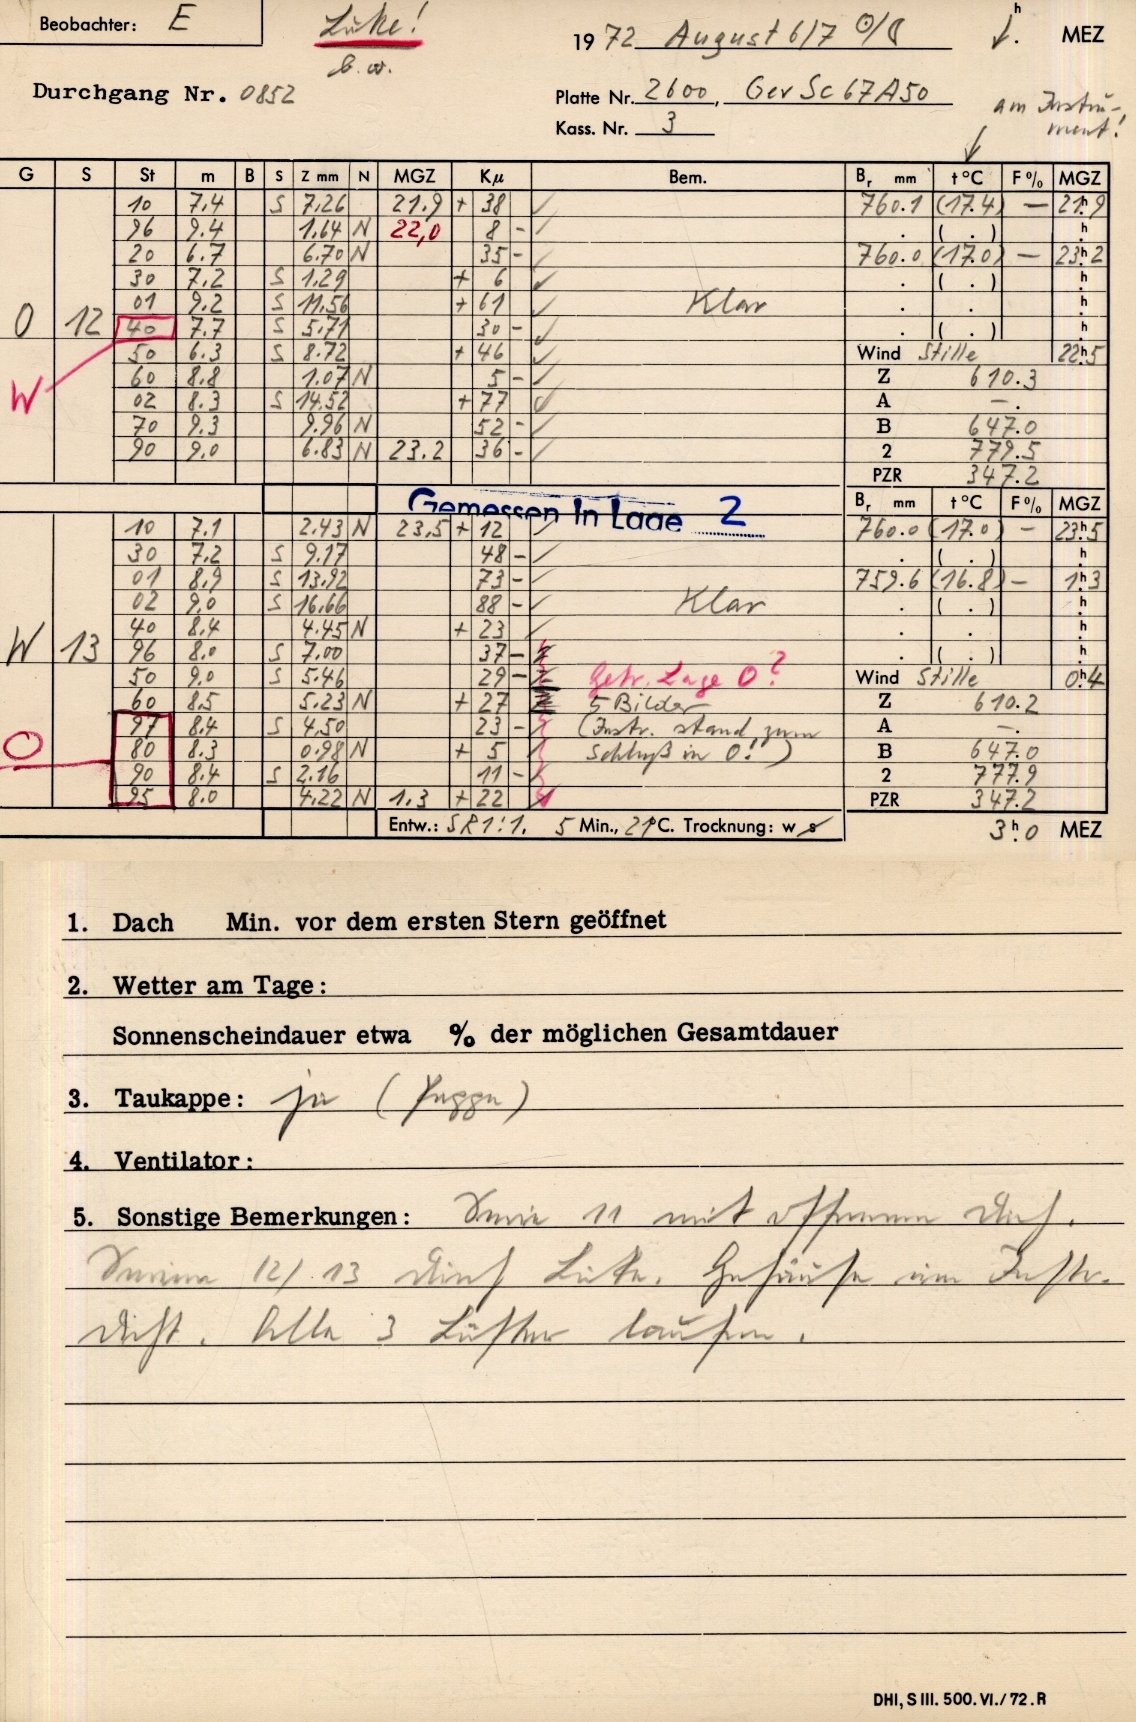 Beobachter: E
Luke!
b.w.
1972 August 6/7 ☉/☾ h. MEZ
Durchgang Nr. 0852
Platte Nr. 2600, Gev Sc 67A50
Kass. Nr. 3
am Instru-
ment!
G S St m B S Z mm N MGZ Kμ Bem. Br mm t°C F% MGZ
10 7.4 S 7.26 21.9 + 38 760.1 (17.4) — 21h9
96 9.4 1.64 N 22,0 8 - . ( . ) h
20 6.7 6.70 N 35 - 760.0 (17.0) — 23h2
30 7.2 S 1.29 + 6 . ( . ) h
01 9.2 S 11.56 + 61 Klar . . h
O 12 40 7.7 S 5.71 30 - . ( . ) h
50 6.3 S 8.72 + 46 Wind Stille 22h5
W 60 8.8 1.07 N 5 - Z 610.3
02 8.3 S 14.52 + 77 A —.
70 9.3 9.96 N 52 - B 647.0
90 9.0 6.83 N 23.2 36 - 2 779.5
PZR 347.2
Gemessen in Lage 2 Br mm t°C F% MGZ
10 7.1 2.43 N 23,5 + 12 760.0 (17.0) — 23h5
30 7.2 S 9.17 48 - . ( . ) h
01 8.9 S 13.92 73 - 759.6 (16.8) — 1h3
02 9.0 S 16.66 88 - Klar . ( . ) h
40 8.4 4.45 N + 23 . . h
W 13 96 8.0 S 7.00 37 - . ( . ) h
50 9.0 S 5.46 29 - Getr. Lage O? Wind Stille 0h4
60 8.5 5.23 N + 27 5 Bilder Z 610.2
97 8.4 S 4.50 23 - (Instr. stand zum A —.
O 80 8.3 0.98 N + 5 Schluß in O!) B 647.0
90 8.4 S 2.16 11 - 2 777.9
95 8.0 4.22 N 1.3 + 22 PZR 347.2
Entw.: SR 1:1. 5 Min., 21°C. Trocknung: w s 3h0 MEZ
1. Dach Min. vor dem ersten Stern geöffnet
2. Wetter am Tage:
Sonnenscheindauer etwa % der möglichen Gesamtdauer
3. Taukappe: ja (Pappe)
4. Ventilator:
5. Sonstige Bemerkungen: Serie 11 mit offenem Dach.
Serien 12/13 durch Luke. Gehäuse um Instr.
dicht. Alle 3 Lüfter laufen.
DHI, S III. 500. VI./72. R